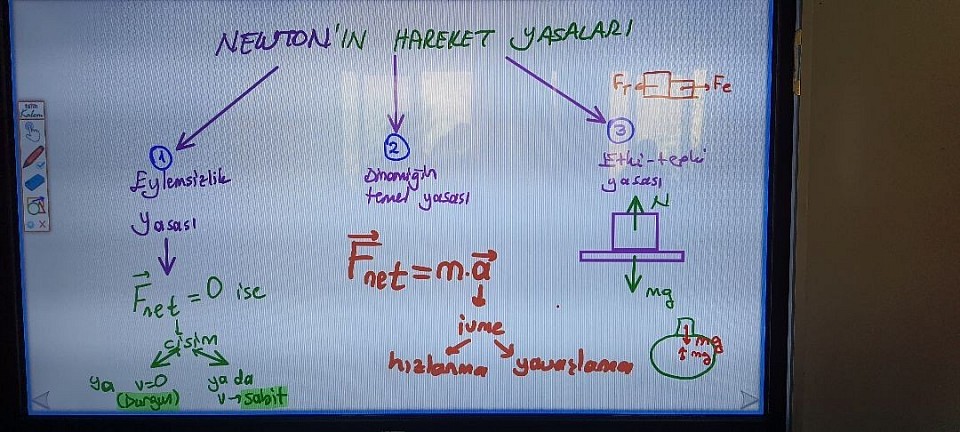 NEWTON'IN HAREKET YASALARI
1
Eylemsizlik
Yasası
Fnet = 0 ise
cisim
ya v=0
(Durgun)
ya da
v → sabit
2
Dinamiğin
temel yasası
Fnet = m.a
ivme
hızlanma
yavaşlama
Fe
3
Etki-tepki
yasası
N
mg
mg
mg